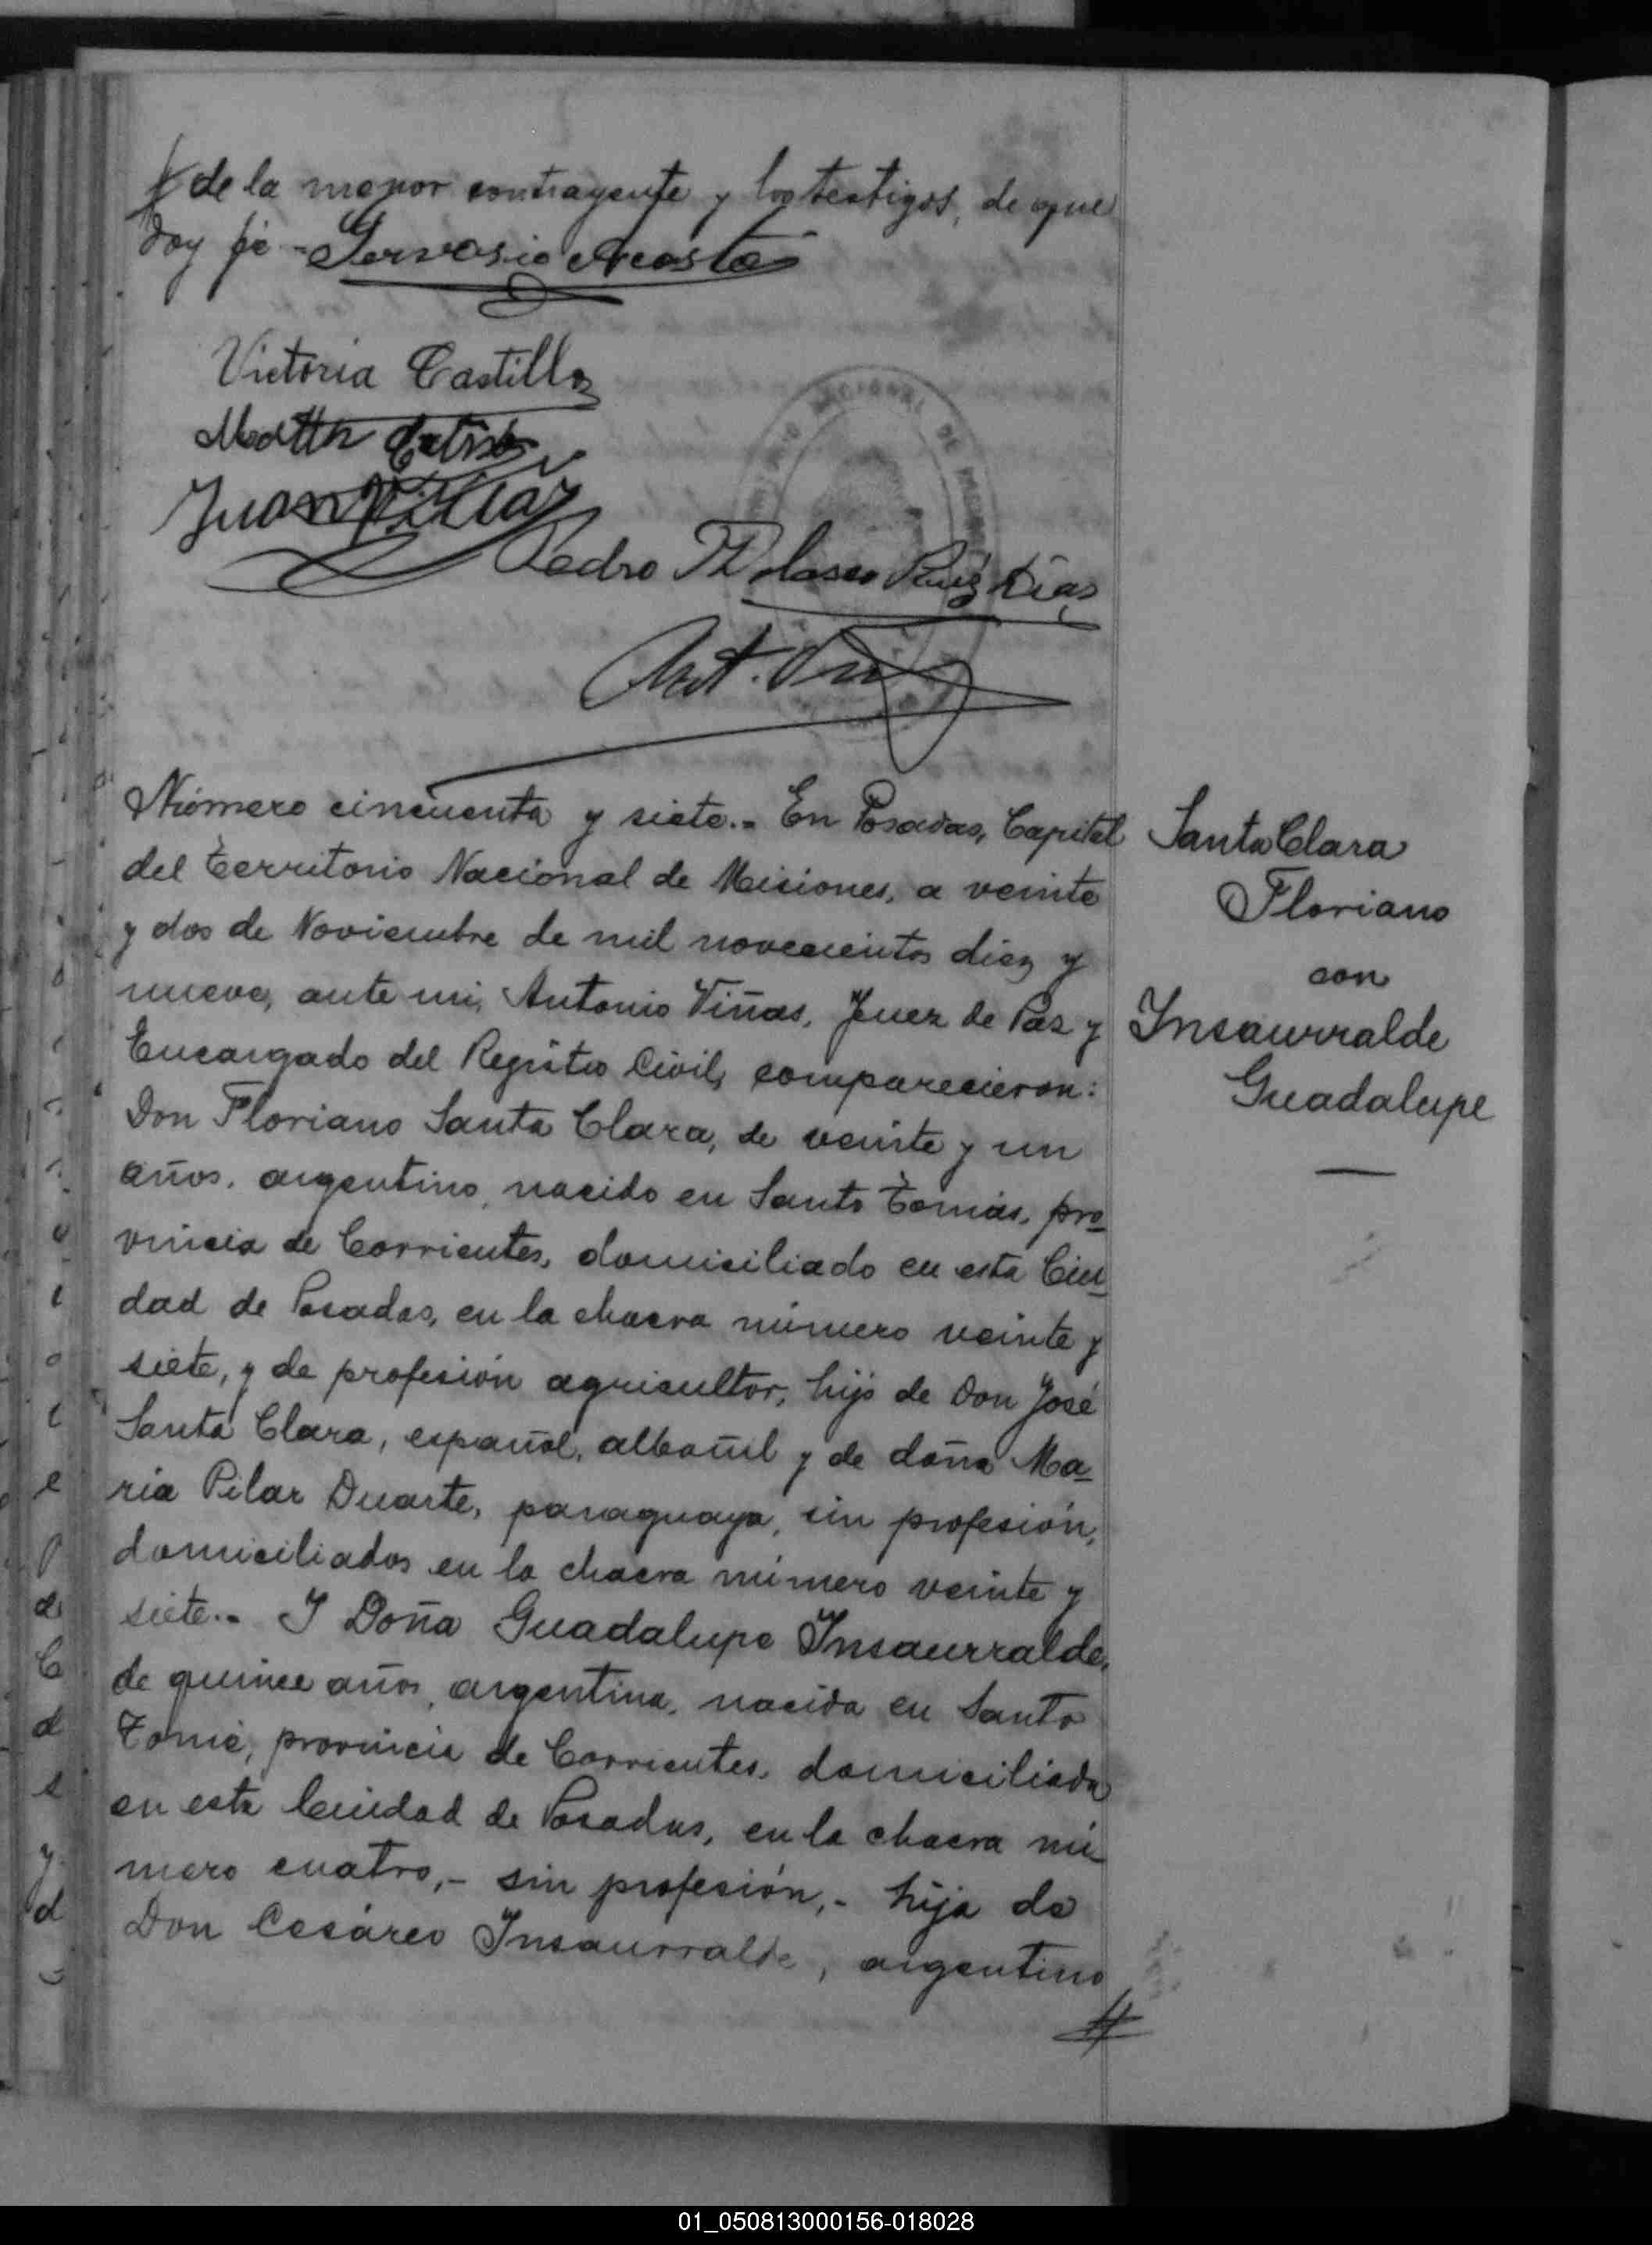 de la menor contrayente y los testigos, de que
doy fé - Gervasio Acosta
Victoria Castillo
Juan
Pedro Ruiz Dias
Número cincuenta y siete.- En Posadas, Capital
del Territorio Nacional de Misiones, a veinte
y dos de Noviembre de mil novecientos diez y
nueve, ante mi, Antonio Viñas, Juez de Paz y
Encargado del Registro Civil, comparecieron:
Don Floriano Santa Clara, de veinte y un
años, argentino, nacido en Santo Tomás, pro-
vincia de Corrientes, domiciliado en esta Ciu-
dad de Posadas, en la chacra número veinte y
siete, y de profesión agricultor, hijo de Don José
Santa Clara, español, albañil y de doña Ma-
ria Pilar Duarte, paraguaya, sin profesión,
domiciliados en la chacra número veinte y
siete.- Y Doña Guadalupe Insaurralde,
de quince años, argentina, nacida en Santo
Tomé, provincia de Corrientes, domiciliada
en esta Ciudad de Posadas, en la chacra nú-
mero cuatro,- sin profesión,- hija de
Don Cesáreo Insaurralde, argentino
#
Santa Clara
Floriano
con
Insaurralde
Guadalupe
01_050813000156-018028